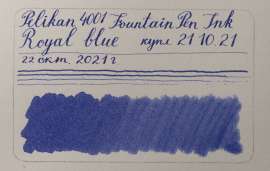 Pelikan 4001 Fountain Pen Ink
Royal blue купл 21 10.21
22 окт. 2021 г